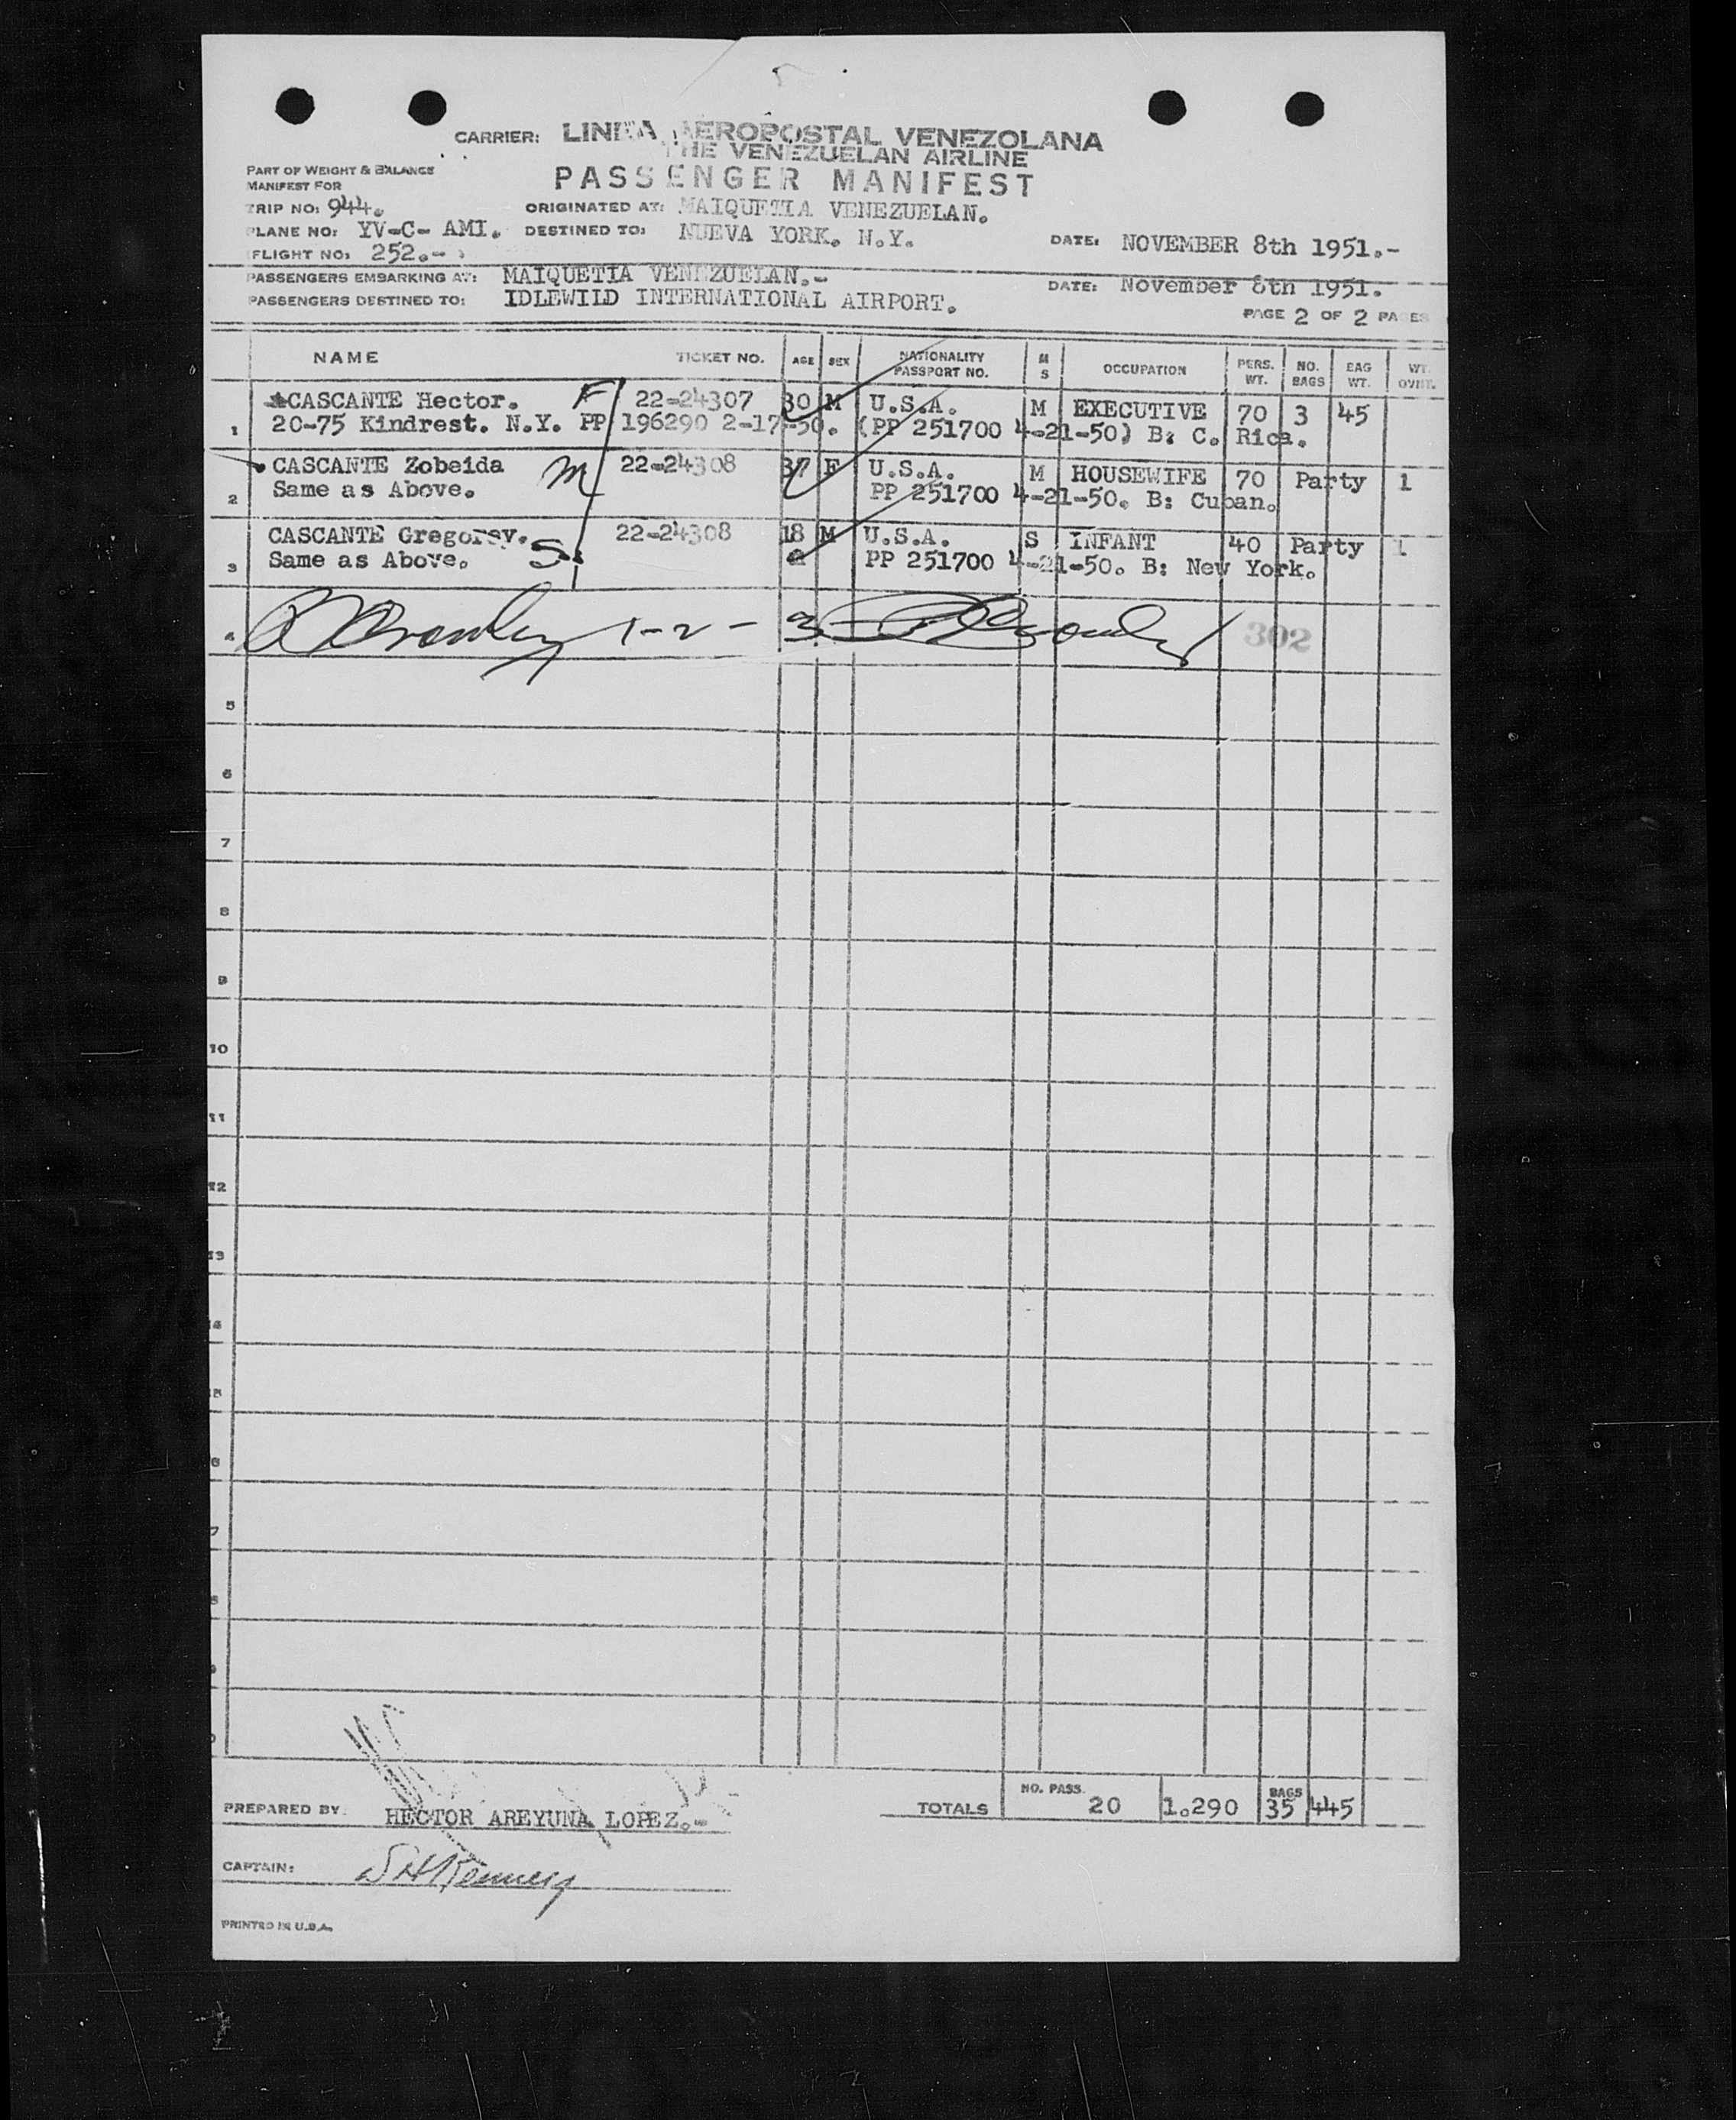 CARRIER: LINEA AEROPOSTAL VENEZOLANA
THE VENEZUELAN AIRLINE
PASSENGER MANIFEST
PART OF WEIGHT & BALANCE
MANIFEST FOR
TRIP NO: 944. ORIGINATED AT: MAIQUETIA VENEZUELAN.
PLANE NO: YV-C- AMI. DESTINED TO: NUEVA YORK. N.Y. DATE: NOVEMBER 8th 1951.-
FLIGHT NO: 252.-
PASSENGERS EMBARKING AT: MAIQUETIA VENEZUELAN.- DATE: November 8th 1951.
PASSENGERS DESTINED TO: IDLEWILD INTERNATIONAL AIRPORT.
PAGE 2 OF 2 PAGES
NAME TICKET NO. AGE SEX NATIONALITY PASSPORT NO. M S OCCUPATION PERS. WT. NO. BAGS BAG WT. WT. OVHT.
CASCANTE Hector. F 22-24307 30 M U.S.A. M EXECUTIVE 70 3 45
1 20-75 Kindrest. N.Y. PP 196290 2-17-50. (PP 251700 4-21-50) B: C. Rica.
CASCANTE Zobeida M 22-24308 37 F U.S.A. M HOUSEWIFE 70 Party 1
2 Same as Above. PP 251700 4-21-50. B: Cuban.
CASCANTE Gregorey. S 22-24308 18 M U.S.A. S INFANT 40 Party 1
3 Same as Above. PP 251700 4-21-50. B: New York.
4 1-2-3 302
5
6
7
8
9
10
11
12
13
14
15
6
7
8
NO. PASS. BAGS
PREPARED BY: HECTOR AREYUNA LOPEZ.- TOTALS 20 1.290 35 445
CAPTAIN:
PRINTED IN U.S.A.